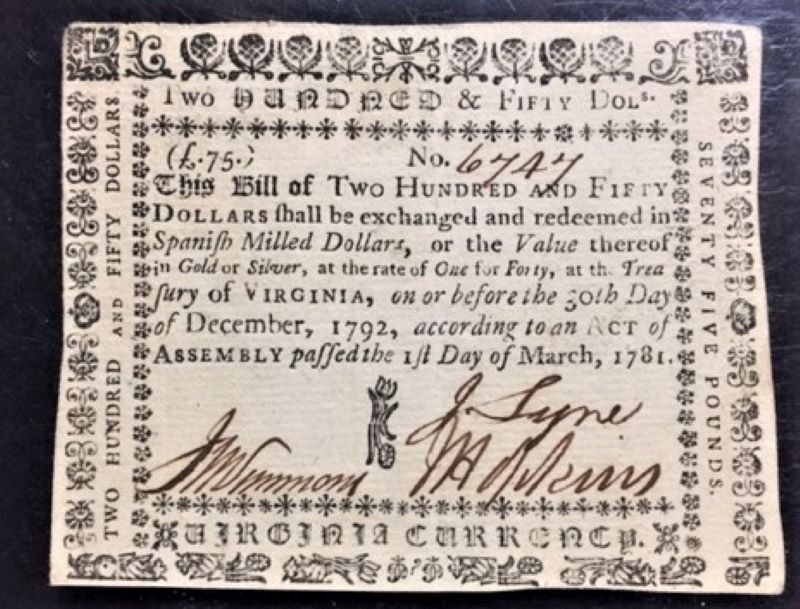 Two HUNDRED & FIFTY DOLs.
(£.75.) No. 6747
This Bill of TWO HUNDRED AND FIFTY
DOLLARS ſhall be exchanged and redeemed in
Spaniſh Milled Dollars, or the Value thereof
in Gold or Silver, at the rate of One for Forty, at the Trea
ſury of VIRGINIA, on or before the 30th Day
of December, 1792, according to an ACT of
ASSEMBLY paſſed the 1ſt Day of March, 1781.
J. Lyne
J Hopkins
VIRGINIA CURRENCY.
TWO HUNDRED AND FIFTY DOLLARS
SEVENTY FIVE POUNDS.